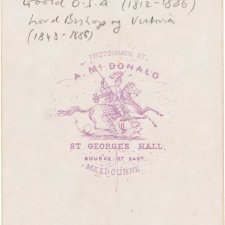 Goold O.S.A (1812-1886)
Lord Bishop of Victoria
(1848-1886)
PHOTOGRAPHD BY
A. McDONALD
ST GEORGES HALL.
BOURKE ST EAST.
MELBOURNE.